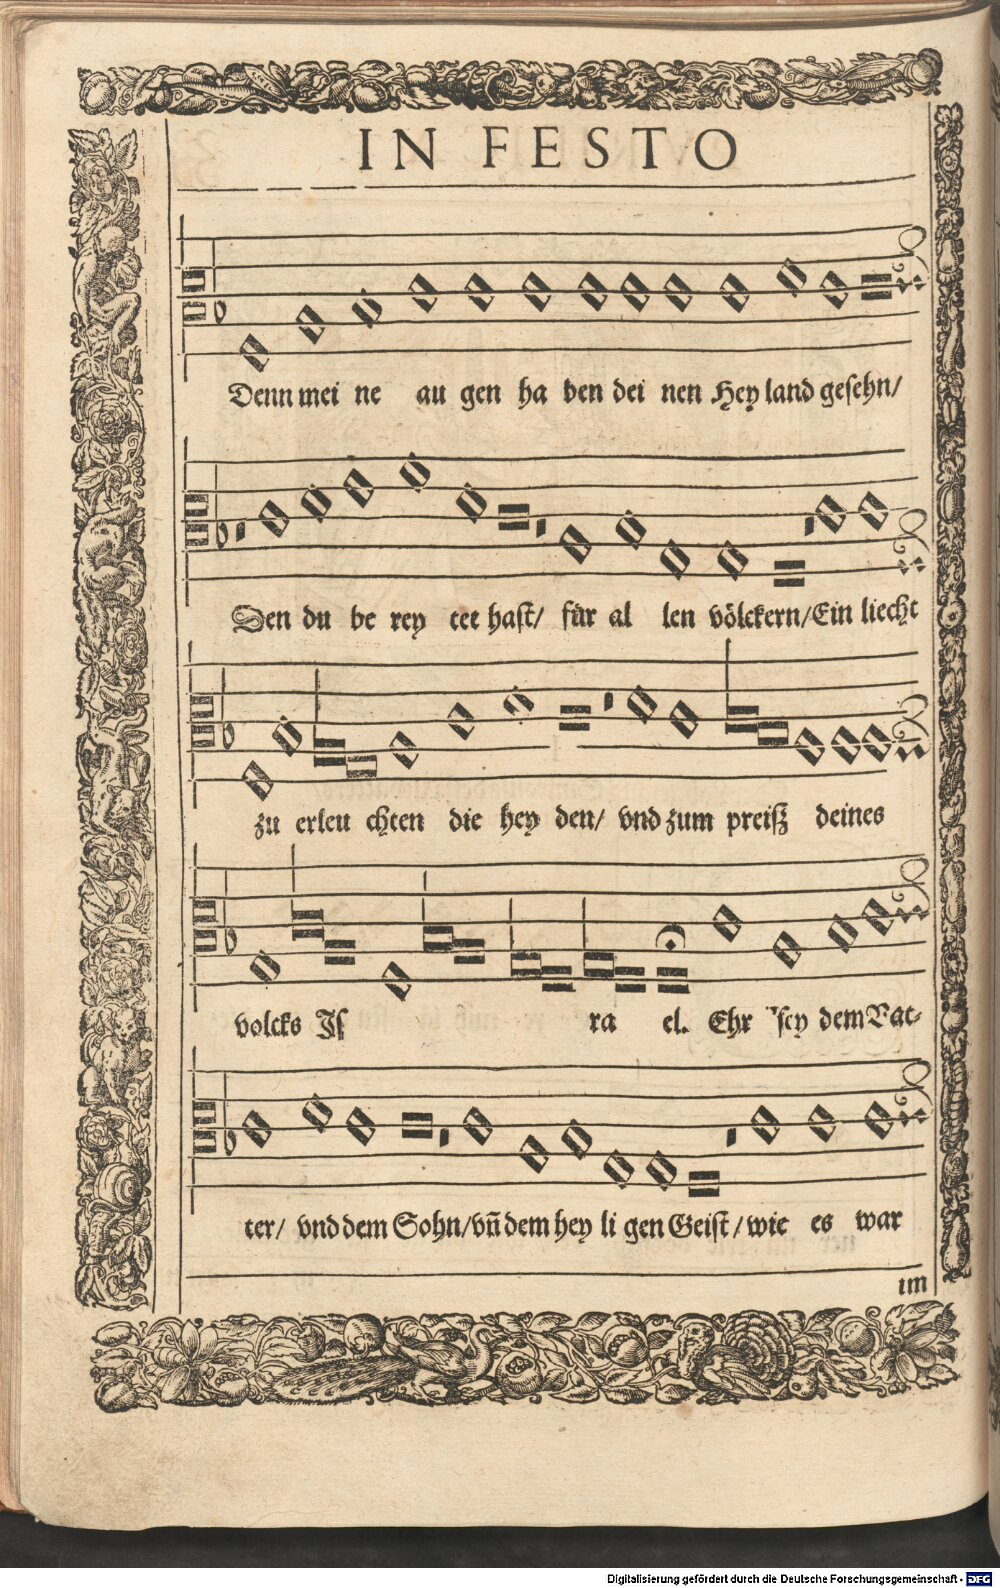 IN FESTO
Denn mei ne au gen ha ben dei nen Hey land gesehn/
Den du be rey tet hast/ für al len völckern/Ein liecht
zu erleu chten die hey den/ vnd zum preisz deines
volcks Is ra el. Ehr sey dem Vat-
ter/ vnd dem Sohn/vn̄ dem hey li gen Geist/wie es war
im
Digitalisierung gefördert durch die Deutsche Forschungsgemeinschaft - DFG